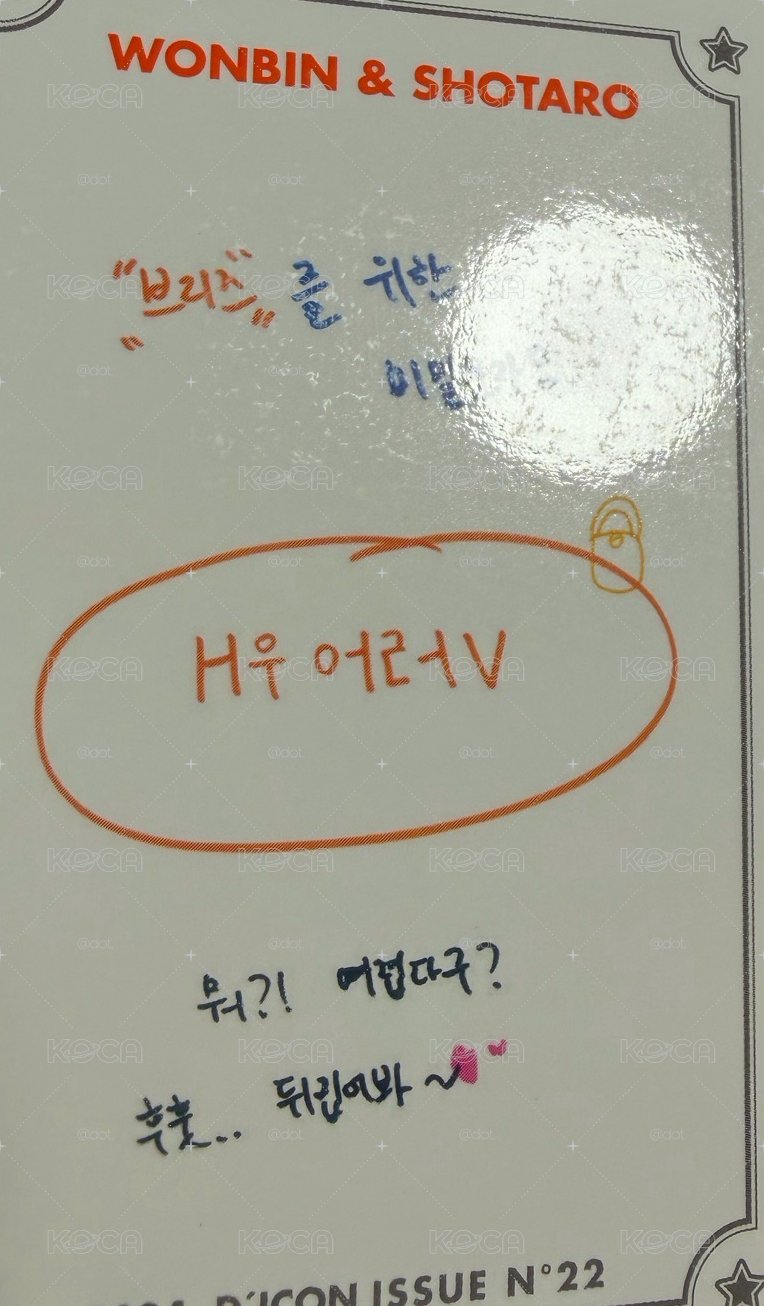 WONBIN & SHOTARO
"브리즈" 를 위한
H우 어러V
뭐?! 어렵다구?
후훗.. 뒤집어봐 ~
D'ICON ISSUE N°22
KOCA
@dot